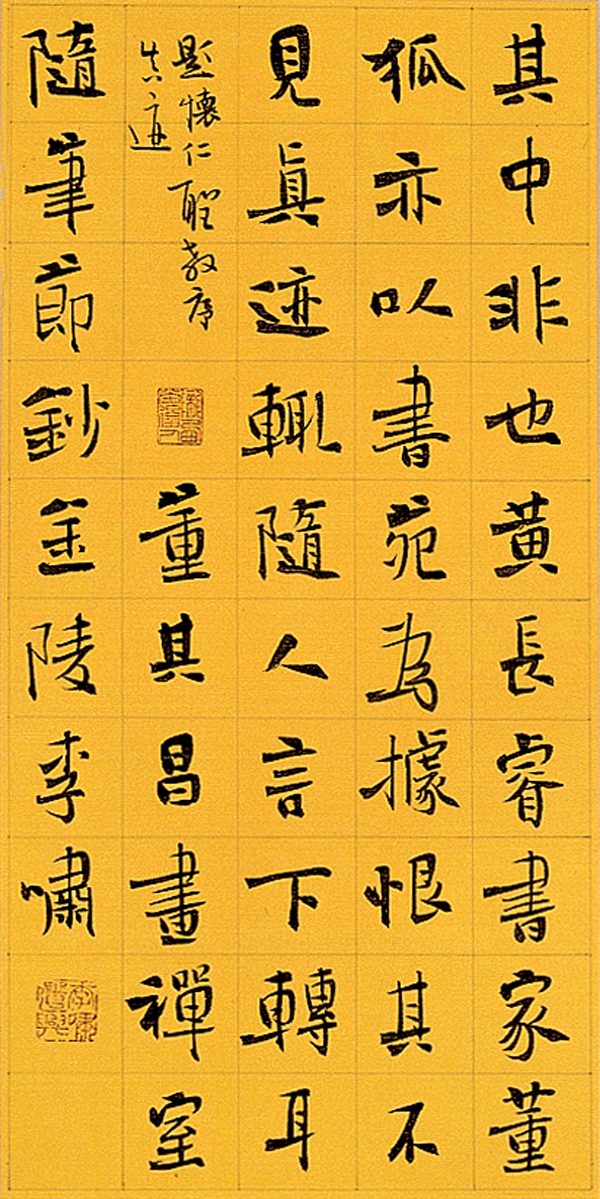 其中非也黃長睿書家董
狐亦以書苑為據恨其不
見真迹輒隨人言下轉耳
題懷仁聖教序
真迹
董其昌畫禪室
隨筆節鈔金陵李嘯